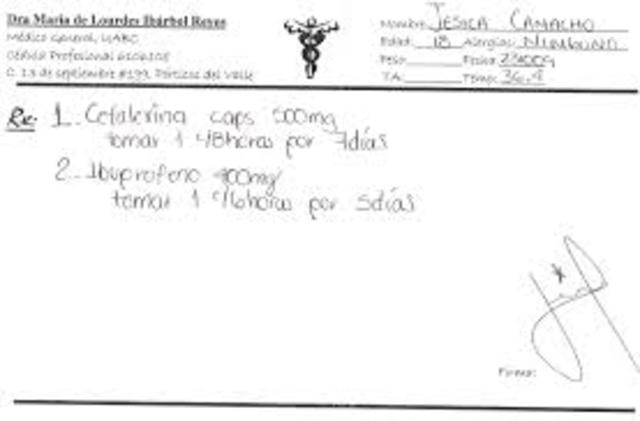 Dra Maria de Lourdes Ibárbol Reyes
Médico General, UABC
Cédula Profesional
C. 13 de septiembre #199, Pórticos del Valle
Nombre: JESICA CAMACHO
Edad: 18 Alergias: NINGUNO
Peso: Fecha:
T.A: Temp: 36.4
Rx: 1. Cefalexina caps 500mg
tomar 1 c/8horas por 7días
2. Ibuprofeno 400mg/
tomar 1 c/6horas por 5días
Firma: